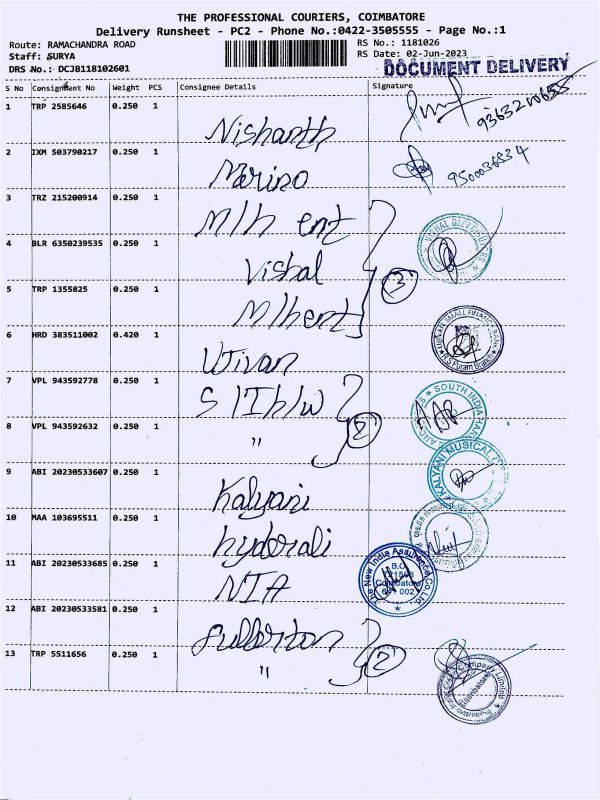 THE PROFESSIONAL COURIERS, COIMBATORE
Delivery Runsheet - PC2 - Phone No.:0422-3505555 - Page No.:1
Route: RAMACHANDRA ROAD
Staff: SURYA
DRS No.: DCJB118102601
RS No.: 1181026
RS Date: 02-Jun-2023
DOCUMENT DELIVERY
S No Consignment No Weight PCS Consignee Details Signature
1 TRP 2585646 0.250 1 Nishanth 9363200655
2 IXM 503790217 0.250 1 Marino 9500036834
3 TRZ 215200914 0.250 1 M/h ent
4 BLR 6350239535 0.250 1 Vishal 3
5 TRP 1355825 0.250 1 M/h ent
6 HRD 383511002 0.420 1 Ujivan
UJJIVAN SMALL FINANCE BANK
R.S Puram Branch
7 VPL 943592778 0.250 1 S/Ih/w
SOUTH INDIA
8 VPL 943592632 0.250 1 " 2
9 ABI 20230533607 0.250 1 Kalyani
KALYANI MUSICAL
10 MAA 103695511 0.250 1 hyderali
11 ABI 20230533685 0.250 1 NIA
The New India Assurance Co. Ltd.
B.O.
Coimbatore
641 002
12 ABI 20230533581 0.250 1 Fullerton
13 TRP 5511656 0.250 1 " 2
Company Limited
Coimbatore